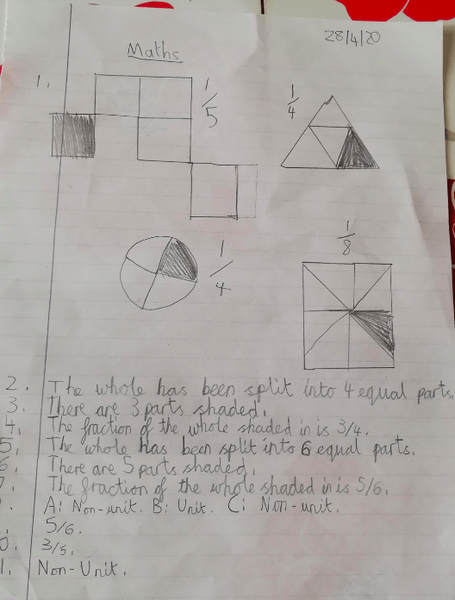 28/4/20
Maths
1.
1/5
1/4
1/4
1/8
2. The whole has been split into 4 equal parts.
3. There are 3 parts shaded.
4. The fraction of the whole shaded in is 3/4.
5. The whole has been split into 6 equal parts.
6. There are 5 parts shaded.
The fraction of the whole shaded in is 5/6.
A: Non-unit. B: Unit. C: Non-unit.
5/6.
0. 3/5.
1. Non-Unit.